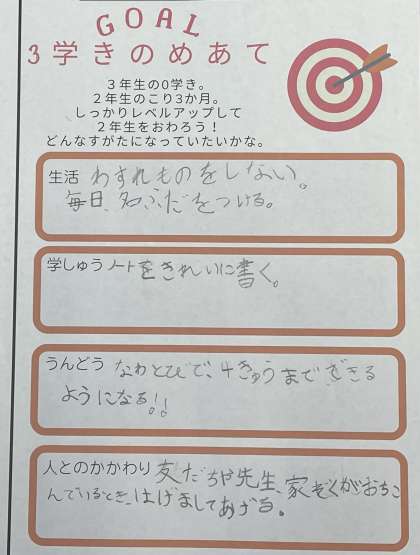 GOAL
3学きのめあて
3年生の0学き。
2年生のこり3か月。
しっかりレベルアップして
2年生をおわろう！
どんなすがたになっていたいかな。
生活 わすれものをしない。
毎日、名ふだをつける。
学しゅう ノートをきれいに書く。
うんどう なわとびで、4きゅうまでできる
ようになる!!
人とのかかわり 友だちや先生、家ぞくがおちこ
んでいるとき、はげましてあげる。